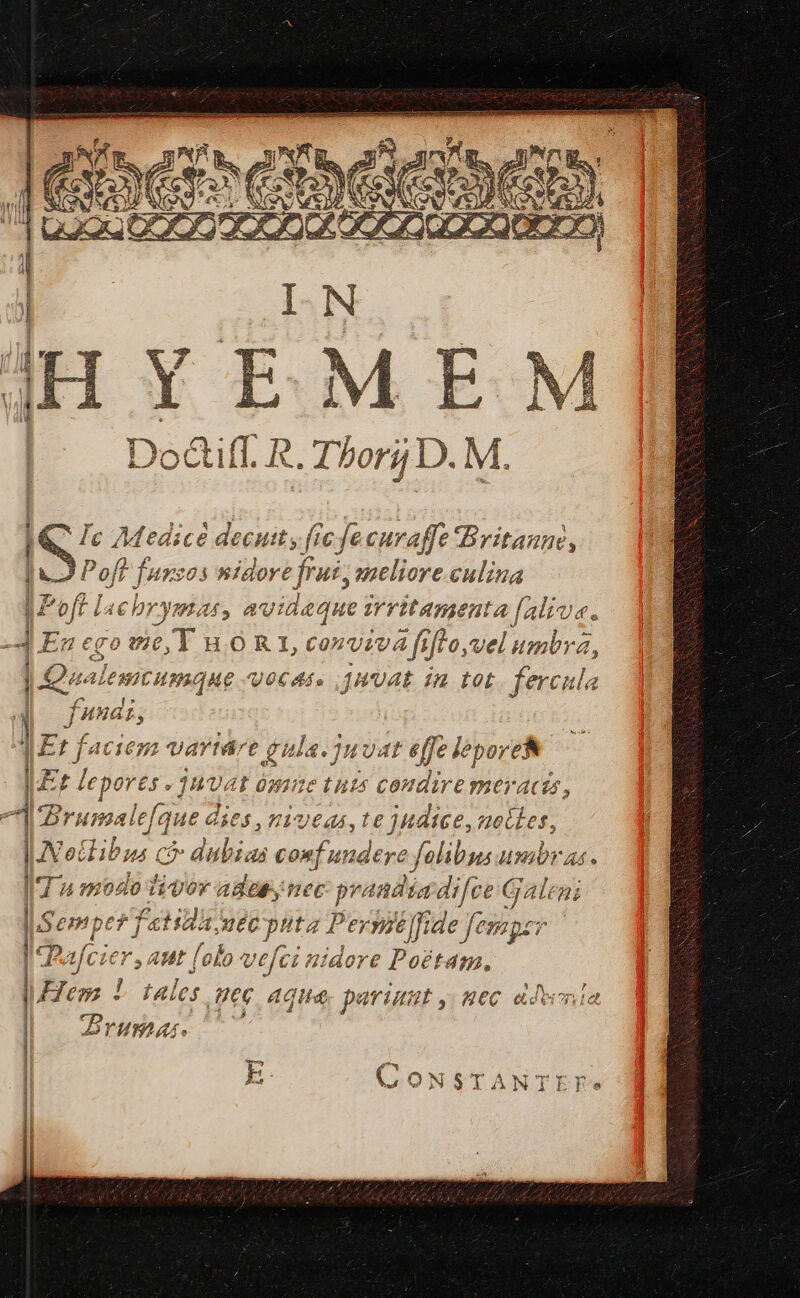 IN
HYEMEM
Doctiſſ. R. Thorij D. M.
SIc Medicè decuit, ſic ſe curaſſe Britanne,
Poſt fumos nidore frui, meliore culina
Poſt lachrymas, avidæque irritamenta ſalivæ.
En ego me, THORI, convivā ſiſto, vel umbrā,
Qualemcumque vocas. juvat in tot fercula
fundi,
Et faciem variare gulæ. juvat eſſe lepores
Et lepores. juvat omne tuis condire meracis,
Brumaleſque dies, niveas, te judice, noctes,
Noctibus & dubias confundere ſolibus umbras.
Tu modo livor ades, nec prandia diſce Galeni
Semper fatida, nec puta Permeſſide ſemper
Paſcier, aut ſolo veſci nidore Poëtam.
Hem ! tales nec aquæ pariunt, nec
Brumas.
E. CONSTANTER.